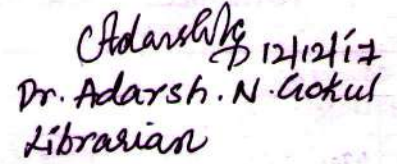 Adarsh 12/12/17
Dr. Adarsh. N. Gokul
Librarian